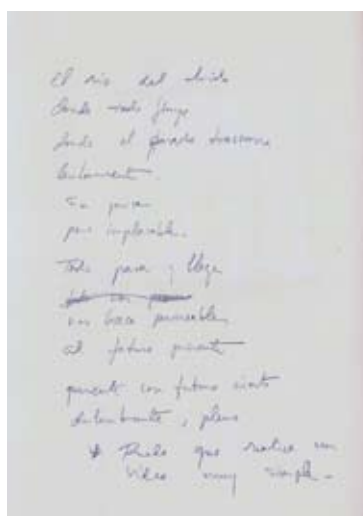 El río del olvido
donde todo fluye
donde el pasado transcurre
lentamente.
Sin prisa
pero implacable.
Todo pasa y llega
nos hace permeables
al futuro
presente con futuro incierto
deslumbrante, pleno
* Puede que realice un
video muy simple.-